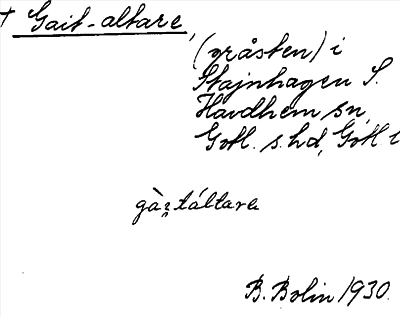 † Gait-altare,
(gråsten) i
Stajnhagen S.
Havdhem sn,
Gotl. s. hd, Gotl. l
gàı̯táltarɐ
B. Bolin 1930.